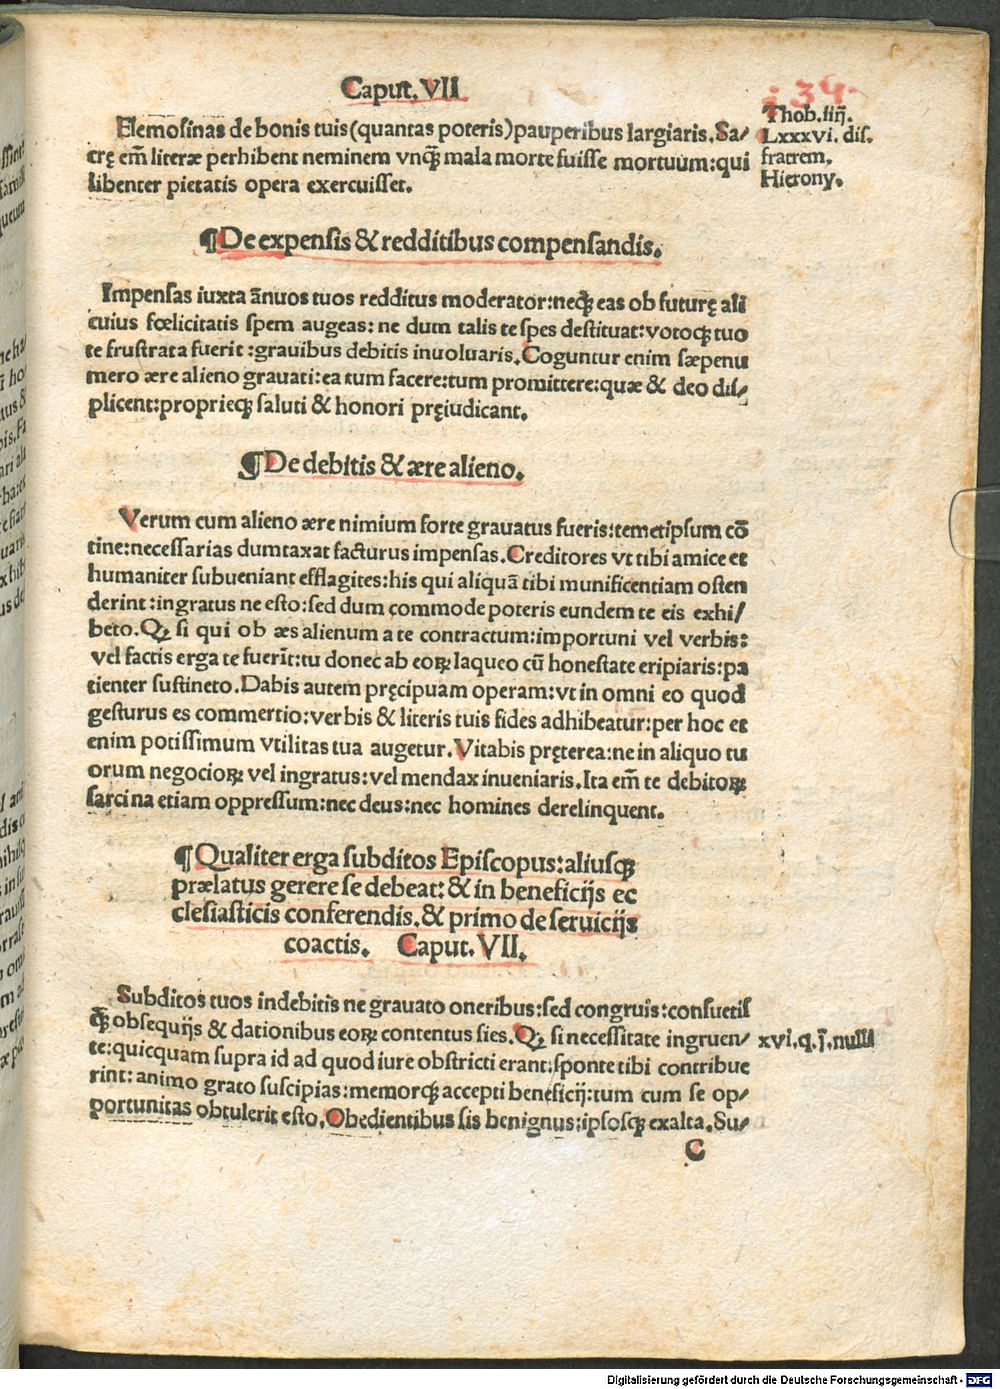 Caput. VII
134.
Elemosinas de bonis tuis (quantas poteris) pauperibus largiaris. Sa⸗
Thob. iiij.
crę em̄ literæ perhibent neminem vnq̃ mala morte fuisse mortuum: qui
Lxxxvi. dis.
fratrem.
libenter pietatis opera exercuisset.
Hierony.
¶ De expensis & redditibus compensandis.
Impensas iuxta ãnuos tuos redditus moderator: neqꝫ eas ob futurę ali
cuius fœlicitatis spem augeas: ne dum talis te spes destituat: votoqꝫ tuo
te frustrata fuerit: grauibus debitis inuoluaris. Coguntur enim sæpenu
mero ære alieno grauati: ea tum facere: tum promittere: quæ & deo dis⸗
plicent: proprieqꝫ saluti & honori pręiudicant.
¶ De debitis & ære alieno.
Verum cum alieno ære nimium forte grauatus fueris: temetipsum cō
tine: necessarias dumtaxat facturus impensas. Creditores vt tibi amice et
humaniter subueniant efflagites: his qui aliquã tibi munificentiam osten
derint: ingratus ne esto: sed dum commode poteris eundem te eis exhi⸗
beto. Qꝫ si qui ob æs alienum a te contractum: importuni vel verbis:
vel factis erga te fuerīt: tu donec ab eoꝝ laqueo cū honestate eripiaris: pa
tienter sustineto. Dabis autem pręcipuam operam: vt in omni eo quod
gesturus es commertio: verbis & literis tuis fides adhibeatur: per hoc et
enim potissimum vtilitas tua augetur. Vitabis pręterea: ne in aliquo tu
orum negocioꝝ vel ingratus: vel mendax inueniaris. Ita em̄ te debitoꝝ
sarcina etiam oppressum: nec deus: nec homines derelinquent.
¶ Qualiter erga subditos Episcopus: aliusqꝫ
prælatus gerere se debeat: & in beneficijs ec
clesiasticis conferendis. & primo de seruicijs
coactis. Caput. VII.
Subditos tuos indebitis ne grauato oneribus: sed congruis: consuetis
qꝫ obsequijs & dationibus eoꝝ contentus sies. Qꝫ si necessitate ingruen⸗
xvi. q. j. nulli
te: quicquam supra id ad quod iure obstricti erant: sponte tibi contribue
rint: animo grato suscipias: memorqꝫ accepti beneficij: tum cum se op⸗
portunitas obtulerit esto. Obedientibus sis benignus: ipsosqꝫ exalta. Su⸗
C
Digitalisierung gefördert durch die Deutsche Forschungsgemeinschaft - DFG